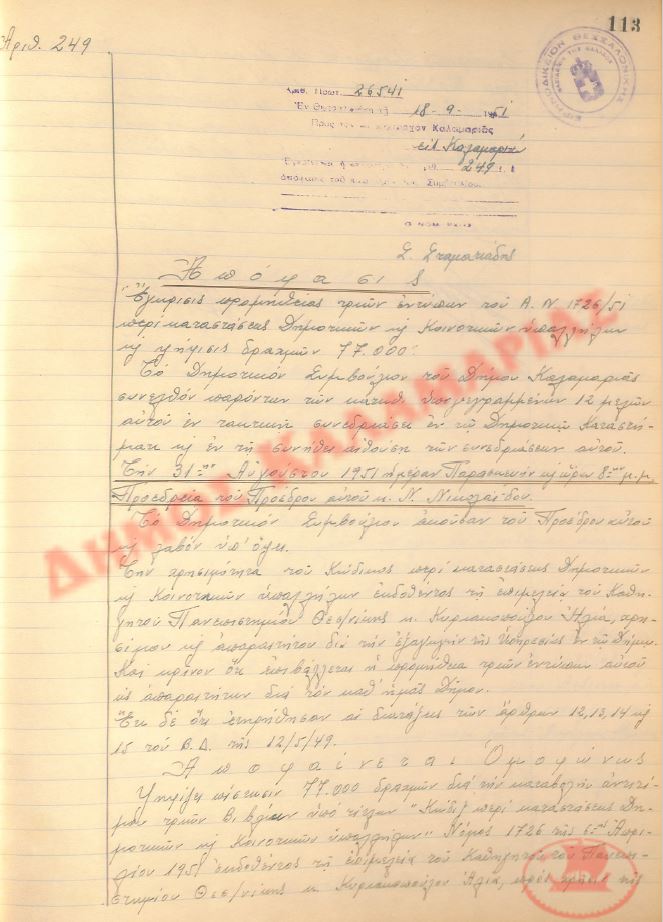 113
Ἀριθ. 249
ΘΕΣΣΑΛΟΝΙΚΗΣ
Ἀριθ. Πρωτ. 26541
Ἐν Θεσσαλονίκῃ τῇ 18-9-1951
Πρὸς τὸν Δήμαρχον Καλαμαριᾶς
εἰς Καλαμαριά
249
Σ. Σταματιάδης
Ἀπόφασις
Ἔγκρισις προμηθείας τριῶν ἐντύπων τοῦ Α.Ν 1726/51
περὶ καταστάσεως Δημοτικῶν κ Κοινοτικῶν ὑπαλλήλων
κ ψήφισις δραχμῶν 77.000.
Τὸ Δημοτικόν Συμβούλιον τοῦ Δήμου Καλαμαριᾶς
συνελθόν παρόντων τῶν κάτωθι ὑπογεγραμμένων 12 μελῶν
αὐτοῦ ἐν τακτικῇ συνεδριάσει ἐν τῷ Δημοτικῷ Καταστή-
ματι κ ἐν τῇ συνήθει αἰθούσῃ τῶν συνεδριάσεων αὐτοῦ.
Τὴν 31ην Αὐγούστου 1951 ἡμέραν Παρασκευὴν κ ὥραν 8ην μ.μ.
Προεδρεία τοῦ Προέδρου αὐτοῦ κ. Ν. Νικολαΐδου.
Τὸ Δημοτικόν Συμβούλιον ἀκοῦσαν τοῦ Προέδρου αὐτοῦ
κ λαβόν ὑπ' ὄψει.
Τὴν χρησιμότητα τοῦ Κώδικος περὶ καταστάσεως Δημοτικῶν
κ Κοινοτικῶν ὑπαλλήλων ἐκδοθέντος τῇ ἐπιμελείᾳ τοῦ Καθη-
γητοῦ Πανεπιστημίου Θεσ/νίκης κ. Κυριακοπούλου Ἠλία, χρη-
σίμου κ ἀπαραιτήτου διὰ τὴν ἐξαγωγὴν τῆς Ὑπηρεσίας ἐν τῷ Δήμῳ.
Καὶ κρῖνον ὅτι ἐπιβάλλεται ἡ προμήθεια τριῶν ἐντύπων αὐτοῦ
ὡς ἀπαραιτήτων διὰ τὸν καθ' ἡμᾶς Δῆμον.
Ἔτι δὲ ὅτι ἐτηρήθησαν αἱ διατάξεις τῶν ἄρθρων 12,13,14 κ
15 τοῦ Β.Δ. τῆς 12/5/49.
Ἀποφαίνεται Ὁμοφώνως
Ψηφίζει πίστωσιν 77.000 δραχμῶν διὰ τὴν καταβολὴν ἀντιτί-
μου τριῶν Βιβλίων ὑπὸ τίτλον "Κώδιξ περὶ καταστάσεως Δη-
μοτικῶν κ Κοινοτικῶν ὑπαλλήλων" Νόμος 1726 τῆς 6ης Ἀπρι-
λίου 1951 ἐκδοθέντος τῇ ἐπιμελείᾳ τοῦ Καθηγητοῦ τοῦ Πανεπι-
στημίου Θεσ/νίκης κ. Κυριακοπούλου Ἠλία, πρὸς χρῆσιν τῆς
ΔΗΜΟΣ ΚΑΛΑΜΑΡΙΑΣ